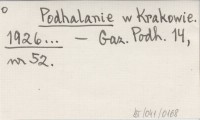 Podhalanie w Krakowie.
1926... — Gaz. Podh. 14,
nr 52.